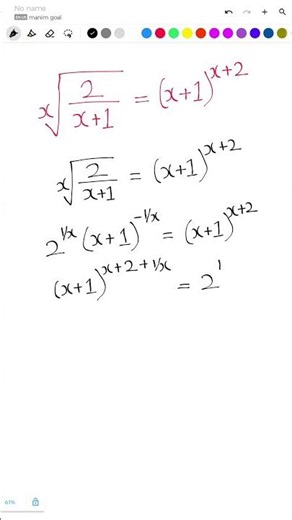 No name
manim goal
\sqrt[x]{\frac{2}{x+1}} = (x+1)^{x+2}
\sqrt[x]{\frac{2}{x+1}} = (x+1)^{x+2}
2^{1/x} (x+1)^{-1/x} = (x+1)^{x+2}
(x+1)^{x+2+1/x} = 2^{1}
67%